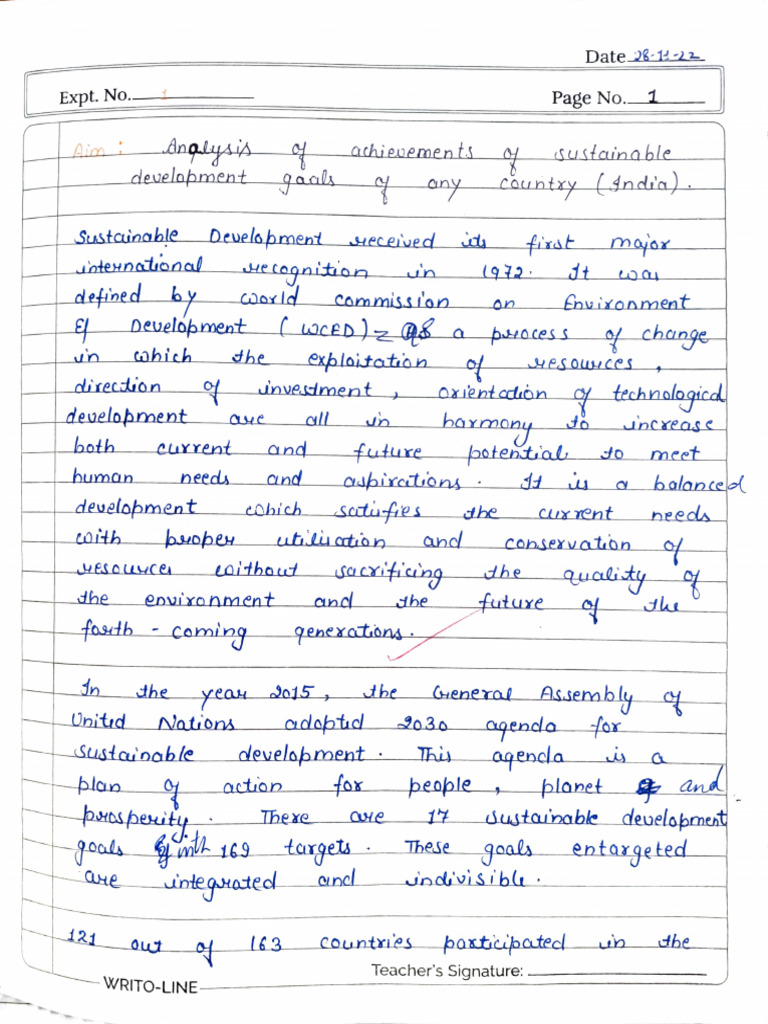 Date 28-11-22
Expt. No. 1
Page No. 1
Aim : Analysis of achievements of sustainable
development goals of any country (India).
Sustainable Development received its first major
international recognition in 1972. It was
defined by world commission on Environment
& Development (WCED) = as a process of change
in which the exploitation of resources,
direction of investment, orientation of technological
development are all in harmony to increase
both current and future potential to meet
human needs and aspirations. It is a balanced
development which satisfies the current needs
with proper utilisation and conservation of
resources without sacrificing the quality of
the environment and the future of the
forth-coming generations.
In the year 2015, the General Assembly of
United Nations adopted 2030 agenda for
sustainable development. This agenda is a
plan of action for people, planet and
prosperity. There are 17 sustainable development
goals with 169 targets. These goals entargeted
are integrated and indivisible.
121 out of 163 countries participated in the
Teacher's Signature:
WRITO-LINE